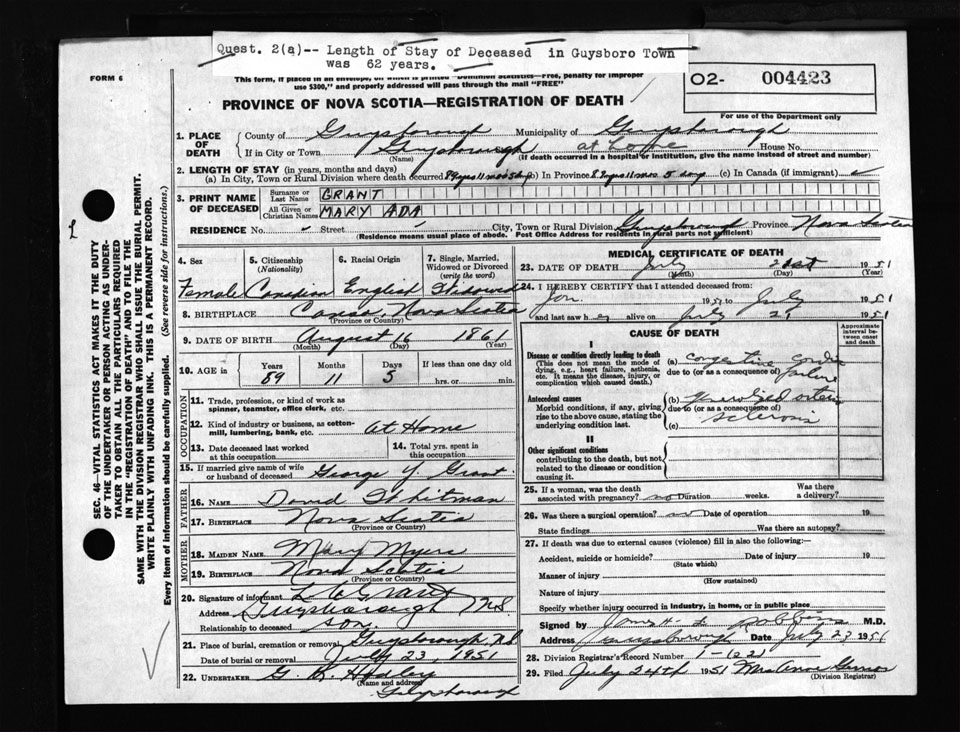 Quest. 2(a)-- Length of Stay of Deceased in Guysboro Town
was 62 years.
FORM 6
This form, if placed in an envelope, on which is printed "Dominion Statistics—Free, penalty for improper
use $300," and properly addressed will pass through the mail "FREE"
O2- 004423
For use of the Department only
PROVINCE OF NOVA SCOTIA—REGISTRATION OF DEATH
1. PLACE OF DEATH
County of Guysborough Municipality of Guysborough
If in City or Town Guysborough at home House No.
(Name) (If death occurred in a hospital or institution, give the name instead of street and number)
2. LENGTH OF STAY (in years, months and days)
(a) In City, Town or Rural Division where death occurred 89 yrs 11 mos 5 dys (b) In Province 89 yrs 11 mos 5 days (c) In Canada (if immigrant)
3. PRINT NAME OF DECEASED
Surname or Last Name GRANT
All Given or Christian Names MARY ADA
RESIDENCE No. Street City, Town or Rural Division Guysborough Province Nova Scotia
(Residence means usual place of abode. Post Office Address for residents in rural parts not sufficient)
4. Sex
5. Citizenship (Nationality)
6. Racial Origin
7. Single, Married, Widowed or Divorced (write the word)
Female Canadian English Widowed
8. BIRTHPLACE Canso, Nova Scotia
(Province or Country)
9. DATE OF BIRTH August 16 1861
(Month) (Day) (Year)
10. AGE in
Years Months Days If less than one day old
89 11 5 hrs. or min.
OCCUPATION
11. Trade, profession, or kind of work as spinner, teamster, office clerk, etc.
12. Kind of industry or business, as cotton-mill, lumbering, bank, etc. At Home
13. Date deceased last worked at this occupation
14. Total yrs. spent in this occupation.
15. If married give name of wife or husband of deceased George J. Grant
FATHER
16. NAME David Whitman
17. BIRTHPLACE Nova Scotia
(Province or Country)
MOTHER
18. MAIDEN NAME Mary Myers
19. BIRTHPLACE Nova Scotia
(Province or Country)
20. Signature of informant Grant
Address Guysborough N.S
Relationship to deceased son.
21. Place of burial, cremation or removal Guysborough N.S
Date of burial or removal July 23, 1951
22. UNDERTAKER G. Hadley
(Name and address)
Guysborough
MEDICAL CERTIFICATE OF DEATH
23. DATE OF DEATH July 21st 1951
(Month) (Day) (Year)
24. I HEREBY CERTIFY that I attended deceased from:
Jan. 1951 to July 1951
and last saw her alive on July 21 1951
CAUSE OF DEATH
Approximate interval between onset and death
I
Disease or condition directly leading to death
(This does not mean the mode of dying, e.g., heart failure, asthenia, etc. It means the disease, injury, or complication which caused death.)
(a) congestive cardiac failure
due to (or as a consequence of)
Antecedent causes
Morbid conditions, if any, giving rise to the above cause, stating the underlying condition last.
(b) generalized arterio sclerosis
due to (or as a consequence of)
(c)
II
Other significant conditions
contributing to the death, but not related to the disease or condition causing it.
25. If a woman, was the death associated with pregnancy? no Duration weeks. Was there a delivery?
26. Was there a surgical operation? no Date of operation 19
State findings Was there an autopsy?
27. If death was due to external causes (violence) fill in also the following:—
Accident, suicide or homicide? Date of injury 19
(State which)
Manner of injury
(How sustained)
Nature of injury
Specify whether injury occurred in industry, in home, or in public place
Signed by James H. M.D.
Address Guysborough Date July 23 1951
28. Division Registrar's Record Number
29. Filed July 24th 1951 Mrs
(Division Registrar)
SEC. 46-VITAL STATISTICS ACT MAKES IT THE DUTY
OF THE UNDERTAKER OR PERSON ACTING AS UNDER-
TAKER TO OBTAIN ALL THE PARTICULARS REQUIRED
IN THE "REGISTRATION OF DEATH" AND TO FILE THE
SAME WITH THE DIVISION REGISTRAR WHO SHALL ISSUE THE BURIAL PERMIT.
WRITE PLAINLY WITH UNFADING INK. THIS IS A PERMANENT RECORD.
Every item of information should be carefully supplied. (See reverse side for instructions.)